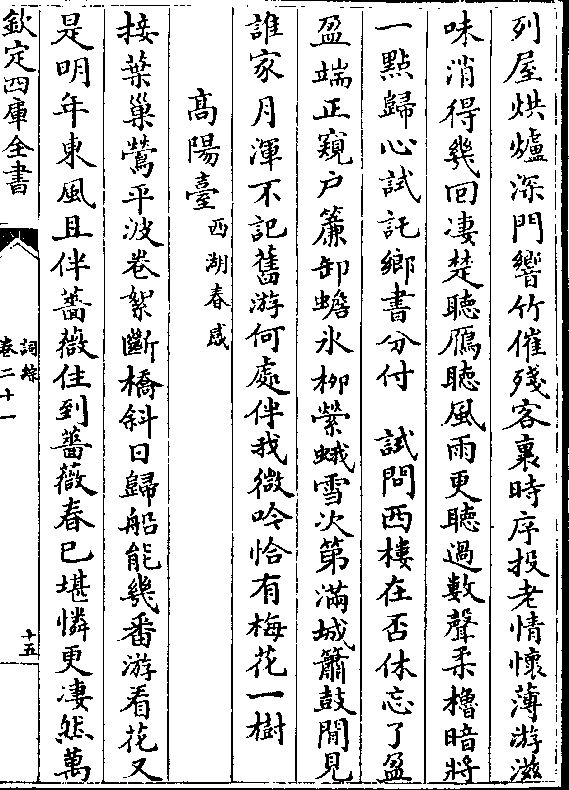 列屋烘爐深門響竹催殘客裏時序投老情懷薄游滋
味消得幾回凄楚聽鴈聽風雨更聽過數聲柔櫓暗將
一點歸心試託鄉書分付　試問西樓在否休忘了盈
盈端正窺户簾卸蟾氷栁縈蛾雪次第滿城簫鼓閒見
誰家月渾不記舊游何處伴我微吟恰有梅花一樹
高陽臺西湖春感
接葉巢鶯平波卷絮斷橋斜日歸船能幾番游看花又
是明年東風且伴薔薇住到薔薇春已堪憐更凄然萬
欽定四庫全書
詞綜
卷二十一
十五